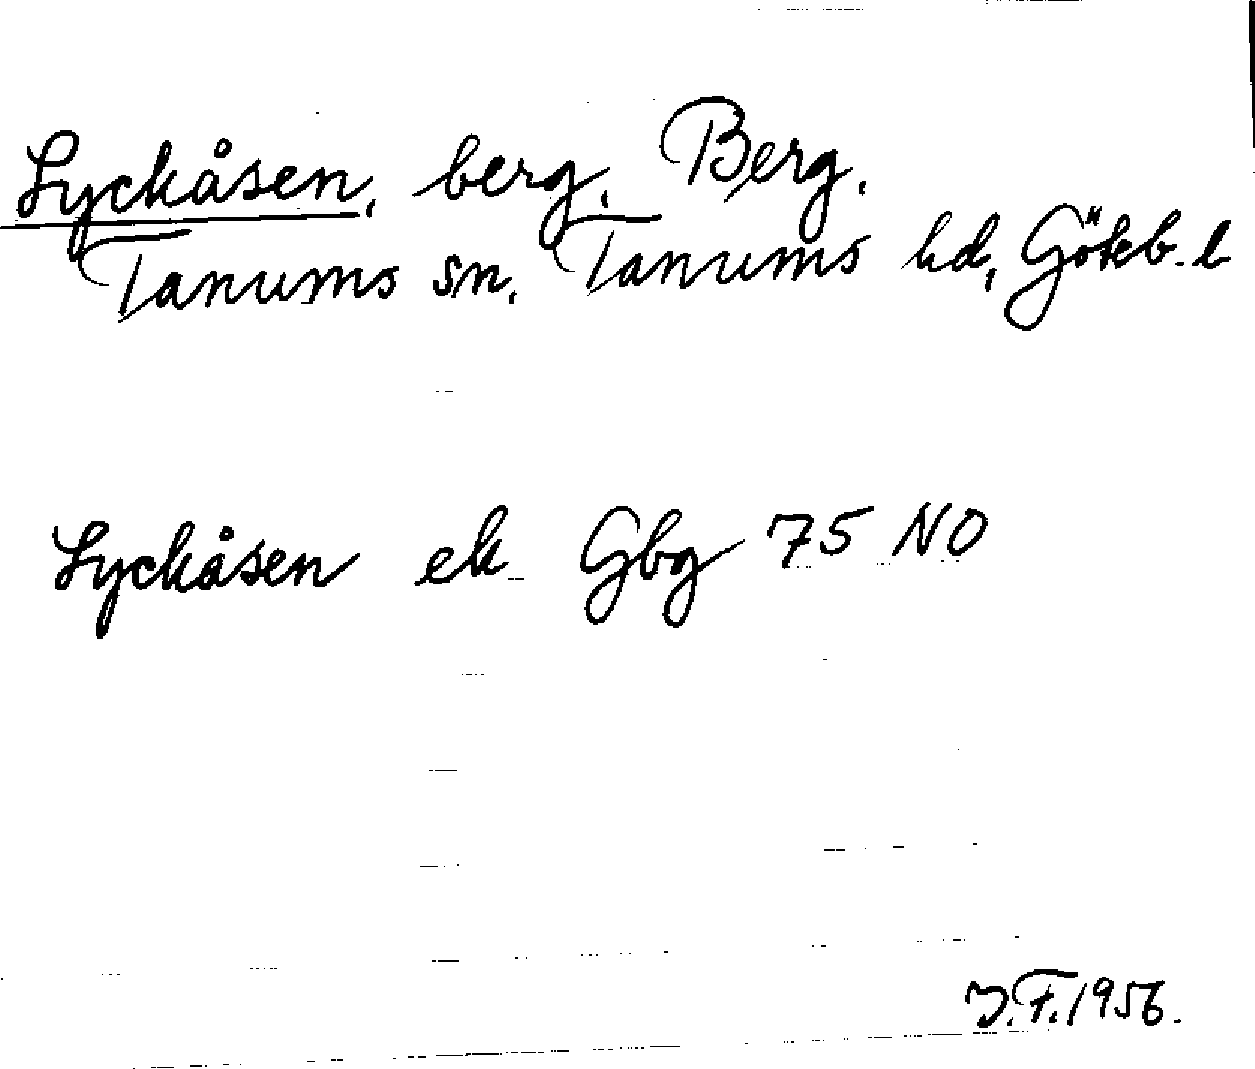 Lyckåsen, berg. Berg.
Tanums sn, Tanums hd, Gökb. l
Lyckåsen ek. Gbg 75 NO
J.F. 1956.